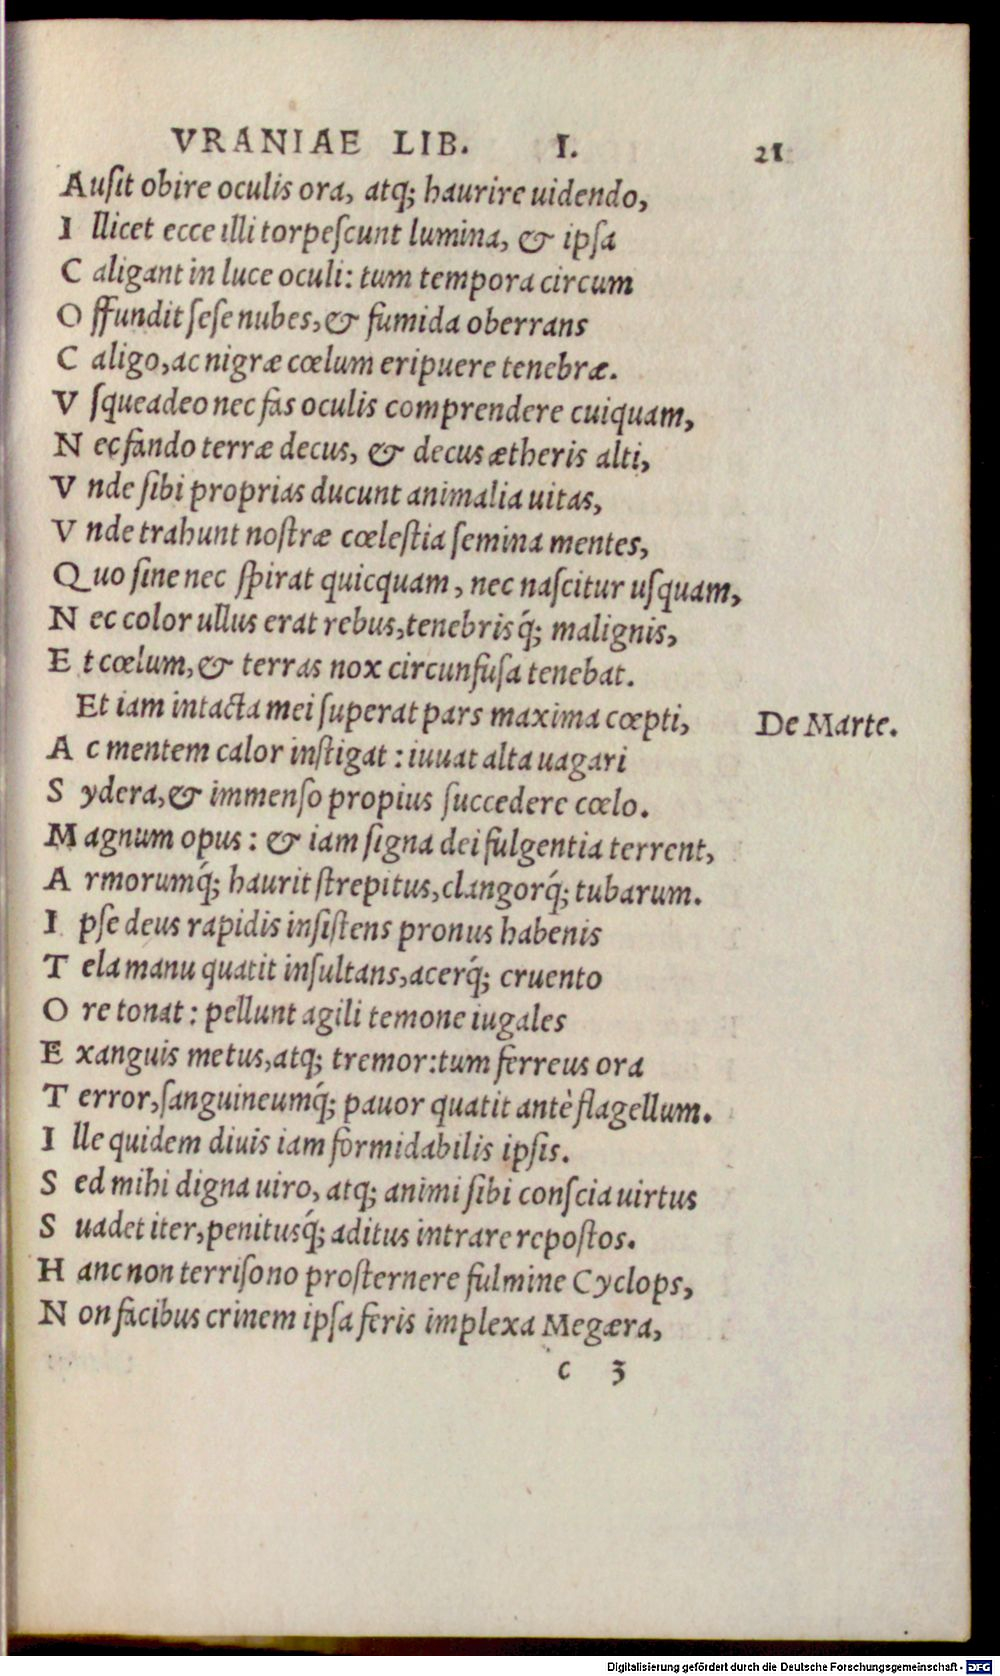 VRANIAE LIB. I. 21
Auſit obire oculis ora, atq; haurire uidendo,
I llicet ecce illi torpeſcunt lumina, & ipſa
C aligant in luce oculi: tum tempora circum
O ffundit ſeſe nubes, & fumida oberrans
C aligo, ac nigræ cœlum eripuere tenebræ.
V ſqueadeo nec fas oculis comprendere cuiquam,
N ec fando terræ decus, & decus ætheris alti,
V nde ſibi proprias ducunt animalia uitas,
V nde trahunt noſtræ cœleſtia ſemina mentes,
Q uo ſine nec ſpirat quicquam, nec naſcitur uſquam,
N ec color ullus erat rebus, tenebrisq́; malignis,
E t cœlum, & terras nox circunfuſa tenebat.
Et iam intacta mei ſuperat pars maxima cœpti, De Marte.
A c mentem calor inſtigat: iuuat alta uagari
S ydera, & immenſo propius ſuccedere cœlo.
M agnum opus: & iam ſigna dei fulgentia terrent,
A rmorumq́; haurit ſtrepitus, clangorq́; tubarum.
I pſe deus rapidis inſiſtens pronus habenis
T ela manu quatit inſultans, acerq́; cruento
O re tonat: pellunt agili temone iugales
E xanguis metus, atq; tremor: tum ferreus ora
T error, ſanguineumq́; pauor quatit antè flagellum.
I lle quidem diuis iam formidabilis ipſis.
S ed mihi digna uiro, atq; animi ſibi conſcia uirtus
S uadet iter, penitusq́; aditus intrare repoſtos.
H anc non terriſono proſternere fulmine Cyclops,
N on facibus crinem ipſa feris implexa Megæra,
c 3
Digitalisierung gefördert durch die Deutsche Forschungsgemeinschaft - DFG